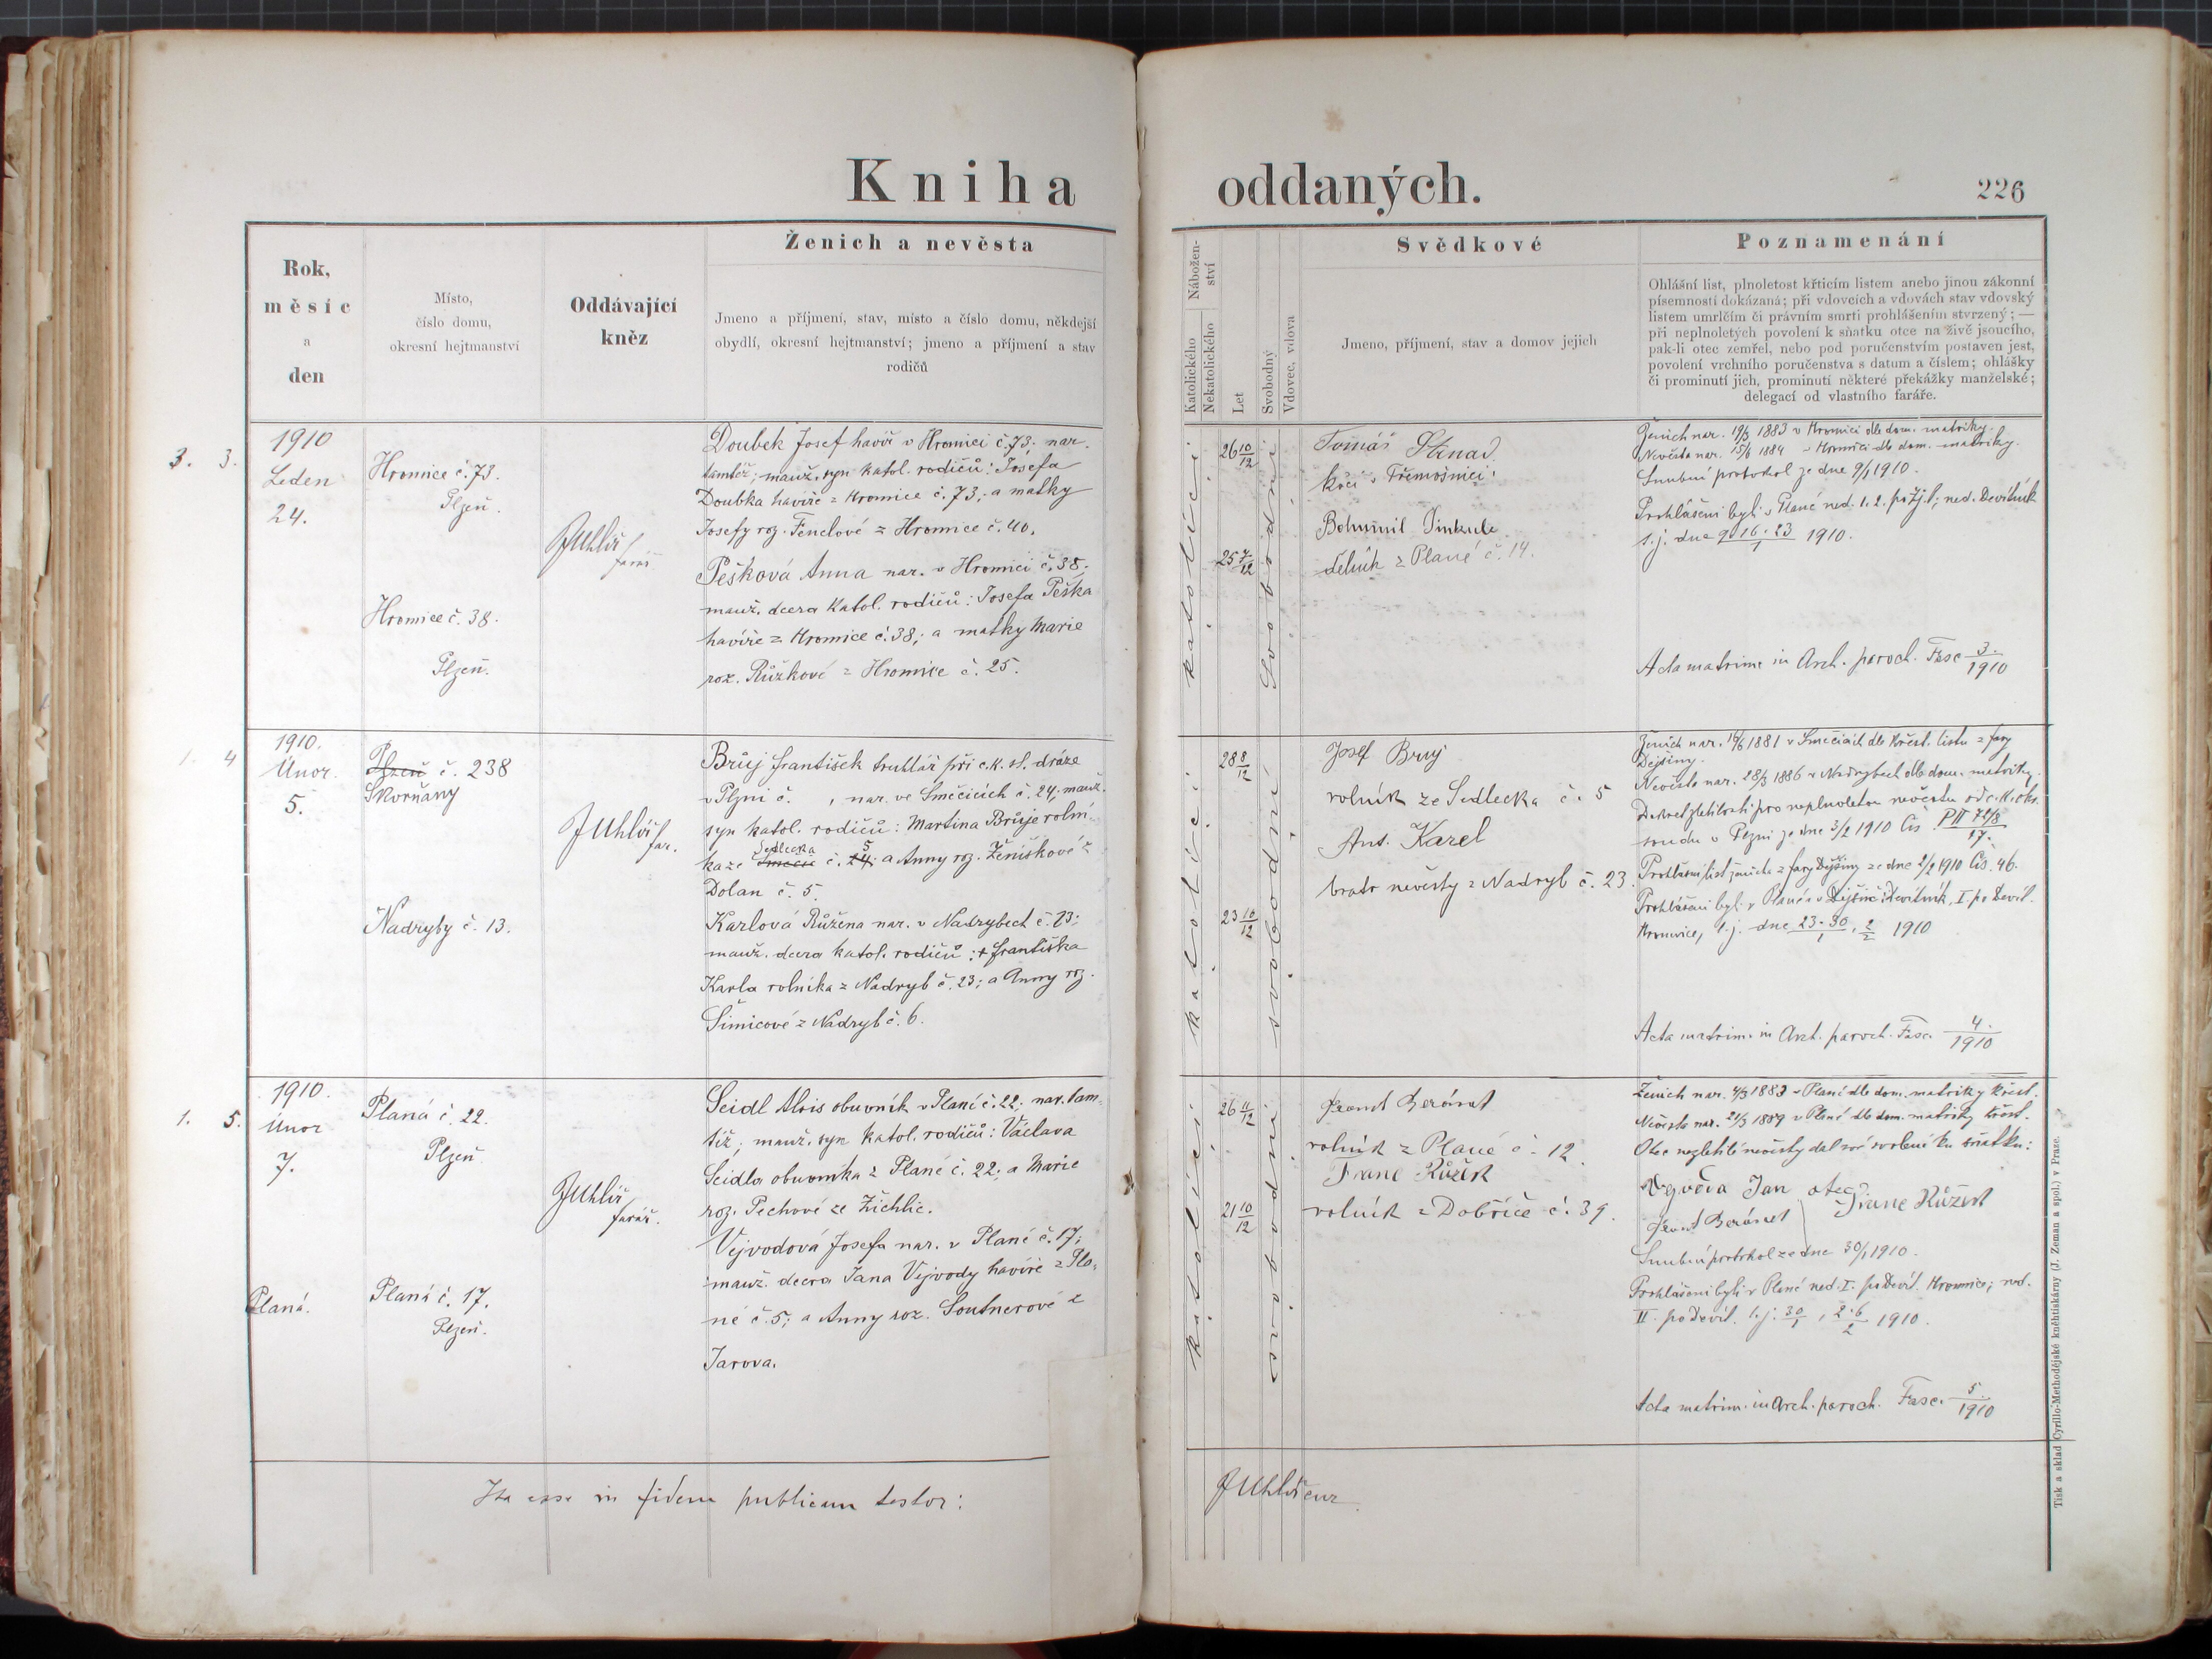 Kniha oddaných.
226
Rok,
měsíc
a
den
Místo,
číslo domu,
okresní hejtmanství
Oddávající
kněz
Ženich a nevěsta
Jmeno a příjmení, stav, místo a číslo domu, někdejší
obydlí, okresní hejtmanství; jmeno a příjmení a stav
rodičů
Nábožen-
ství
Katolického
Nekatolického
Let
Svobodný
Vdovec, vdova
Svědkové
Jmeno, příjmení, stav a domov jejich
Poznamenání
Ohlášní list, plnoletost křticím listem anebo jinou zákonní
písemností dokázaná; při vdovcích a vdovách stav vdovský
listem umrlčím či právním smrti prohlášením stvrzený; —
při neplnoletých povolení k sňatku otce na živě jsoucího,
pak-li otec zemřel, nebo pod poručenstvím postaven jest,
povolení vrchního poručenstva s datum a číslem; ohlášky
či prominutí jich, prominutí některé překážky manželské;
delegací od vlastního faráře.
3. 3.
1910
Leden
24.
Hromice č. 73.
Plzeň.
Hromice č. 38.
Plzeň.
JUhlíř
farář
Doubek Josef havíř v Hromici č. 73; nar.
tamtéž; manž. syn katol. rodičů: Josefa
Doubka havíře z Hromice č. 73; a matky
Josefy roz. Fenclové z Hromice č. 40.
Pešková Anna nar. v Hromici č. 38;
manž. dcera katol. rodičů: Josefa Peška
havíře z Hromice č. 38; a matky Marie
roz. Růžkové z Hromice č. 25.
katolíci
26 10/12
25 7/12
Svobodní
Tomáš Strnad
kočí v Třemošnici.
Bohumil Sinkule
dělník z Plané č. 14.
Ženich nar. 19/3 1883 v Hromici dle dom. matriky.
Nevěsta nar. 15/6 1884 v Hromici dle dom. matriky.
Snubní protokol ze dne 9/1 1910.
Prohlášeni byli v Plané ned. 1. 2. po Zj. P.; ned. Devítník
t. j. dne 9. 16. 23/1 1910.
Acta matrim. in Arch. paroch. Fasc. 3./1910
1. 4
1910.
Únor.
5.
Plzeň č. 238
Skvrňany
Nadryby č. 13.
JUhlíř
far.
Brůj František truhlář při c.k. st. dráze
v Plzni č. , nar. ve Směčicích č. 24; manž.
syn katol. rodičů: Martina Brůje rolní-
Sedlecka 5
ka ze Smečic č. 24; a Anny roz. Ženíškové z
Dolan č. 5.
Karlová Růžena nar. v Nadrybech č. 23;
manž. dcera katol. rodičů: + Františka
Karla rolníka z Nadryb č. 23; a Anny roz.
Šimicové z Nadryb č. 6.
katolíci
28 8/12
23 10/12
svobodní
Josef Bruj
rolník ze Sedlecka č. 5
Ant. Karel
bratr nevěsty z Nadryb č. 23.
Ženich nar. 16/6 1881 v Smečicích dle křest. listu z fary
Dejšiny.
Nevěsta nar. 28/3 1886 v Nadrybech dle dom. matriky.
Dekret zletilosti pro neplnoletou nevěstu od c. k. okr.
soudu v Plzni ze dne 3/2 1910 Čís. P II 72/8
17.
Prohlášní list ženicha z fary Dýšiny ze dne 2/2 1910 Čís. 46.
Prohlášeni byli v Plané a v Dýšině: Devítník, I. po Devít.
Hromnice, t. j. dne 23. 30/1, 2/2 1910
Acta matrim. in Arch. paroch. Fasc. 4./1910
1. 5.
1910.
Únor
7.
Planá.
Planá č. 22.
Plzeň
Planá č. 17.
Plzeň.
JUhlíř
farář.
Seidl Alois obuvník v Plané č. 22; nar. tam-
též; manž. syn katol. rodičů: Václava
Seidla obuvníka z Plané č. 22; a Marie
roz. Pechové ze Žichlic.
Vejvodová Josefa nar. v Plané č. 17;
manž. dcera Jana Vejvody havíře z Pla-
né č. 5; a Anny roz. Soutnerové z
Jarova.
katolíci
26 11/12
21 10/12
svobodní
Frant Beránek
rolník z Plané č. 12.
Franc Růžek
rolník z Dobříče č. 39.
Ženich nar. 4/3 1883 v Plané dle dom. matriky křest.
Nevěsta nar. 21/3 1889 v Plané dle dom. matriky křest.
Otec nezletilé nevěsty dal své svolení ku sňatku:
Vejvoda Jan otec
Frant Beránek
Franc Růžek
Snubní protokol ze dne 30/1 1910.
Prohlášeni byli v Plané ned. I. po Devít. Hromnice; ned.
II. po Devít. t. j. 30/1, 2. 6/2 1910.
Acta matrim. in Arch. paroch. Fasc. 5./1910
Ita esse in fidem publicam testor:
JUhlíř
Tisk a sklad Cyrillo-Methodějské kněhtiskárny (J. Zeman a spol.) v Praze.